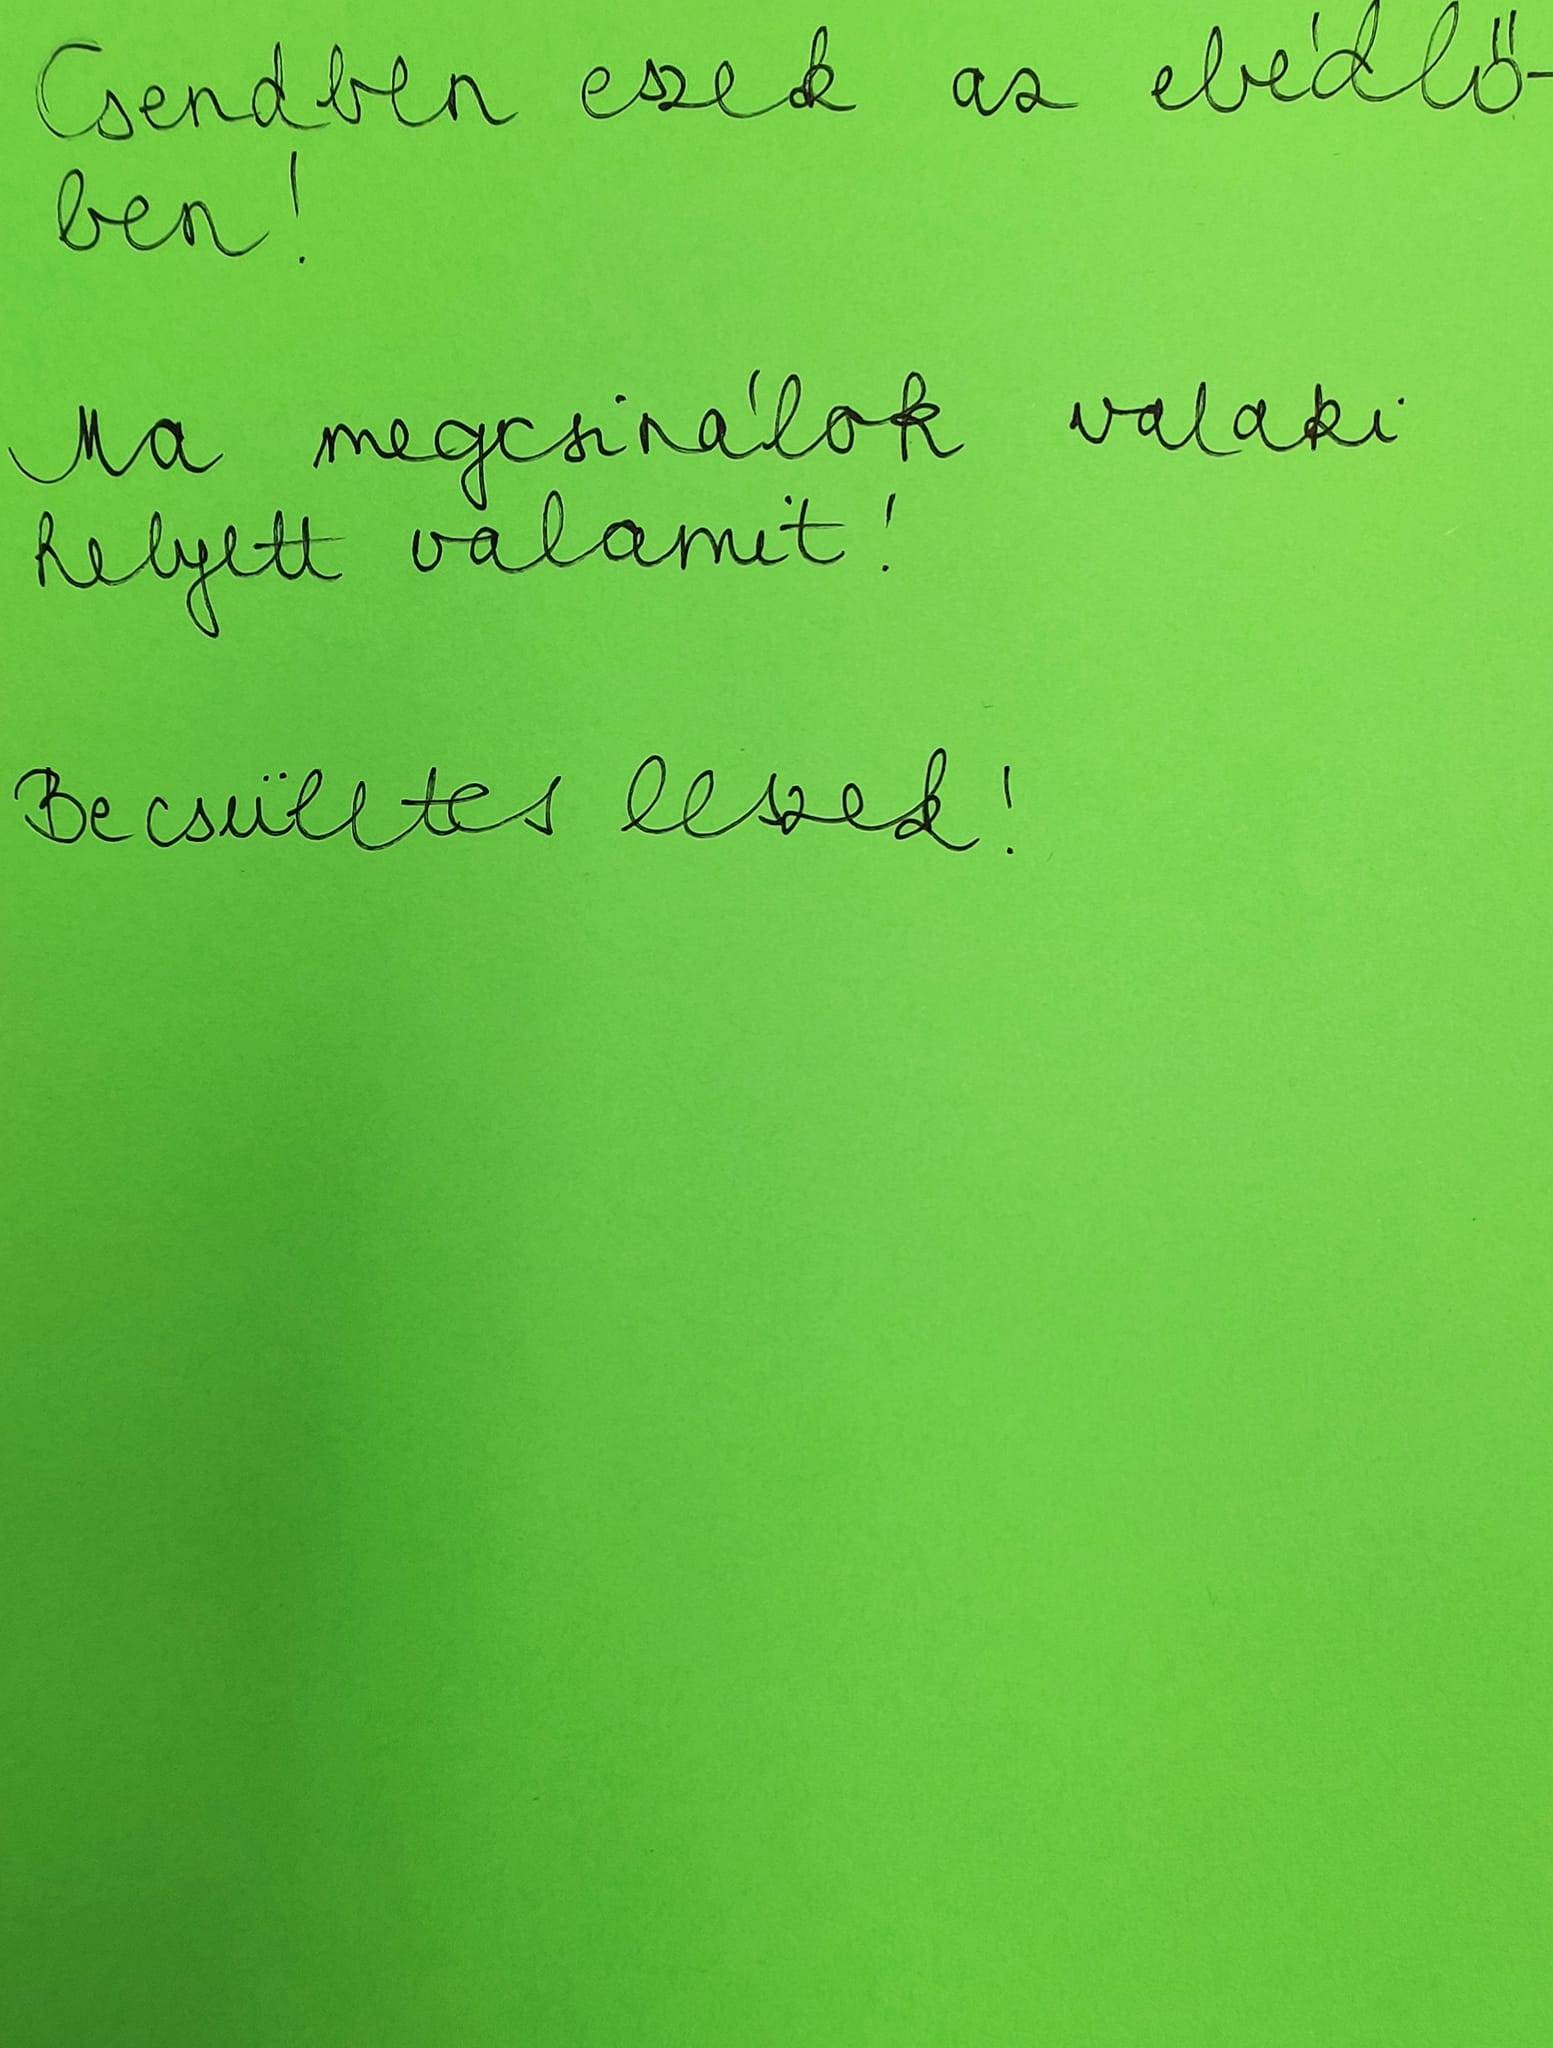 Csendben eszek az ebédlő-
ben!
Ma megcsinálok valaki
helyett valamit!
Becsületes leszek!